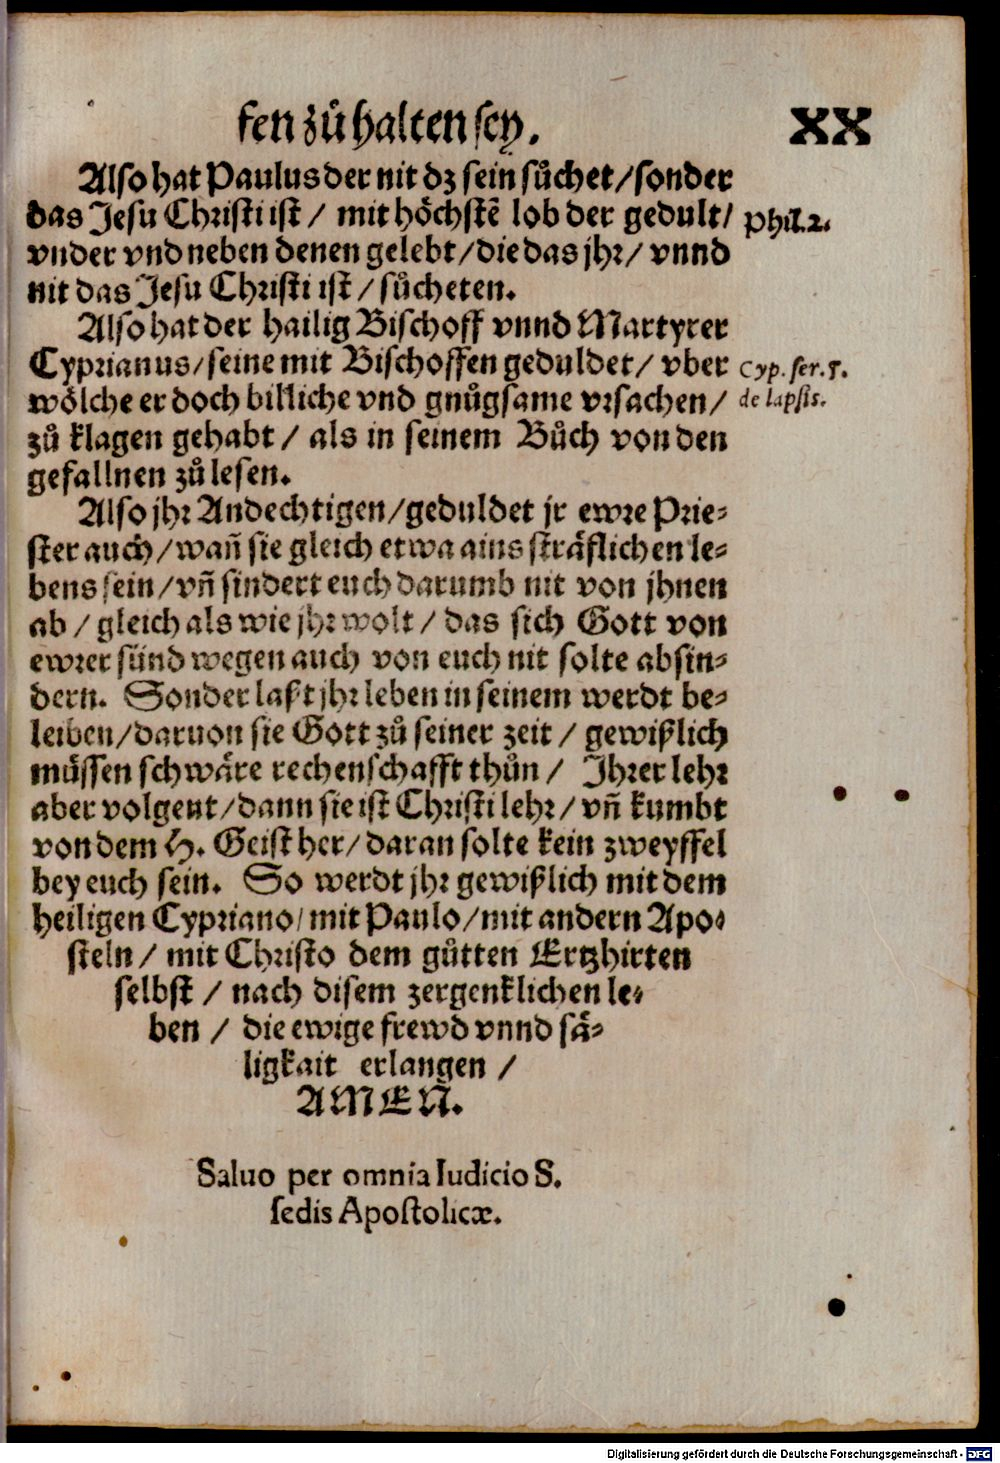 fen zů halten sey. XX
Also hat Paulus der nit dz sein sůchet/sonder
das Jesu Christi ist/ mit höchstē lob der gedult/ Phil.2.
vnder vnd neben denen gelebt/die das jhr/ vnnd
nit das Jesu Christi ist/sůcheten.
Also hat der hailig Bischoff vnnd Martyrer
Cyprianus/seine mit Bischoffen geduldet/ vber Cyp. ser. 5.
wölche er doch billiche vnd gnůgsame vrsachen/ de lapsis.
zů klagen gehabt/ als in seinem Bůch von den
gefallnen zů lesen.
Also jhr Andechtigen/geduldet jr ewre Prie-
ster auch/wañ sie gleich etwa ains sträflichen le-
bens sein/vñ sindert euch darumb nit von jhnen
ab/ gleich als wie jhr wolt/ das sich Gott von
ewrer sünd wegen auch von euch nit solte absin-
dern. Sonder laßt jhr leben in seinem werdt be-
leiben/daruon sie Gott zů seiner zeit/ gewißlich
müssen schwäre rechenschafft thůn/ Jhrer lehr
aber volgent/dann sie ist Christi lehr/ vñ kumbt
von dem H. Geist her/daran solte kein zweyffel
bey euch sein. So werdt jhr gewißlich mit dem
heiligen Cypriano/mit Paulo/mit andern Apo-
steln/ mit Christo dem gůtten Ertzhirten
selbst/ nach disem zergenklichen le-
ben/ die ewige frewd vnnd sä-
ligkait erlangen/
AMEN.
Saluo per omnia Iudicio S.
sedis Apostolicæ.
Digitalisierung gefördert durch die Deutsche Forschungsgemeinschaft - DFG